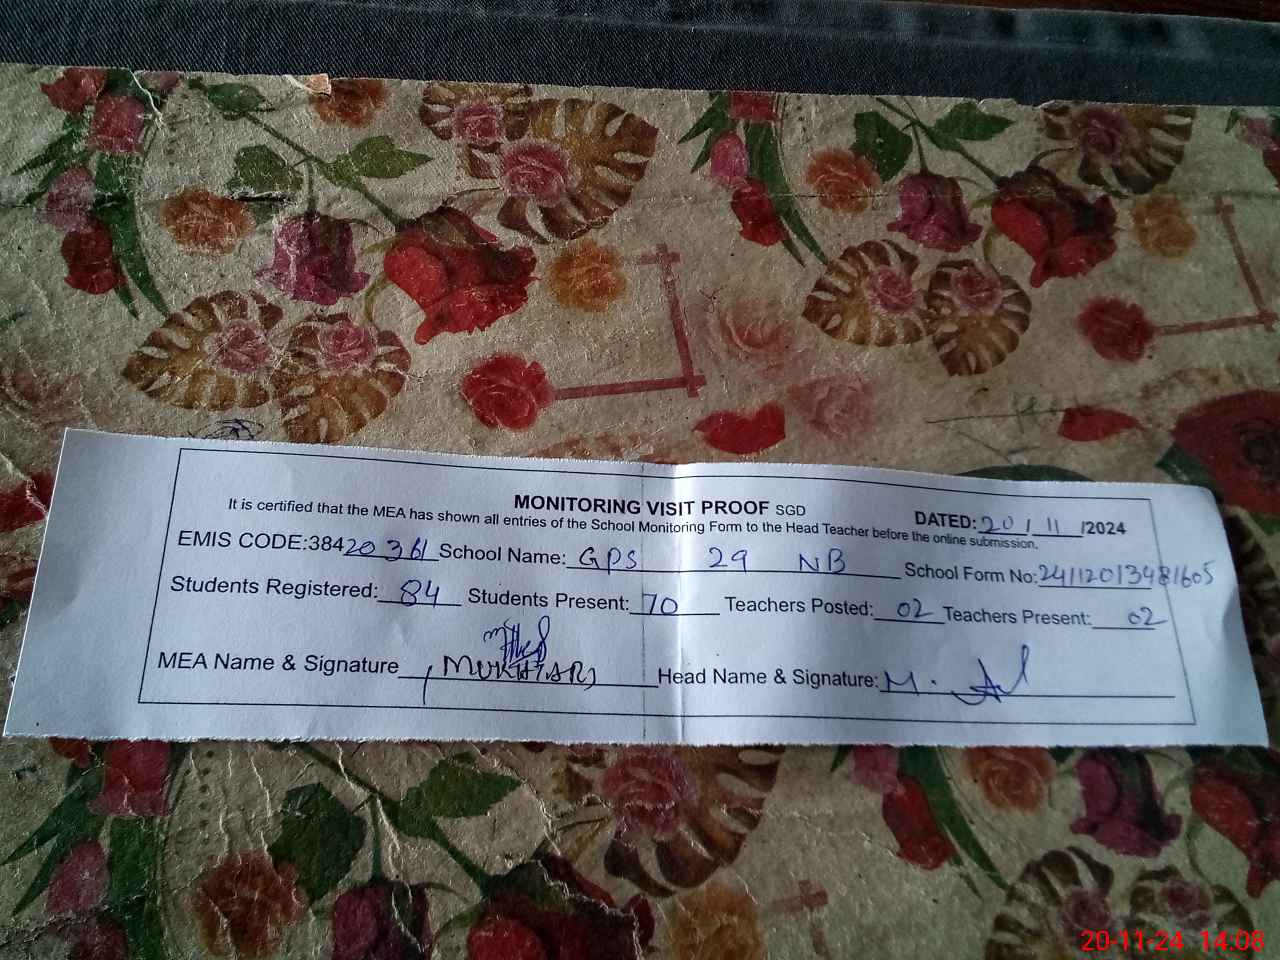 MONITORING VISIT PROOF SGD
DATED: 20/11/2024
It is certified that the MEA has shown all entries of the School Monitoring Form to the Head Teacher before the online submission.
EMIS CODE:38420361 School Name: GPS 29 NB School Form No:24112013481605
Students Registered: 84 Students Present: 70 Teachers Posted: 02 Teachers Present: 02
MEA Name & Signature MUKHTAR Head Name & Signature: M.
20-11-24 14:08